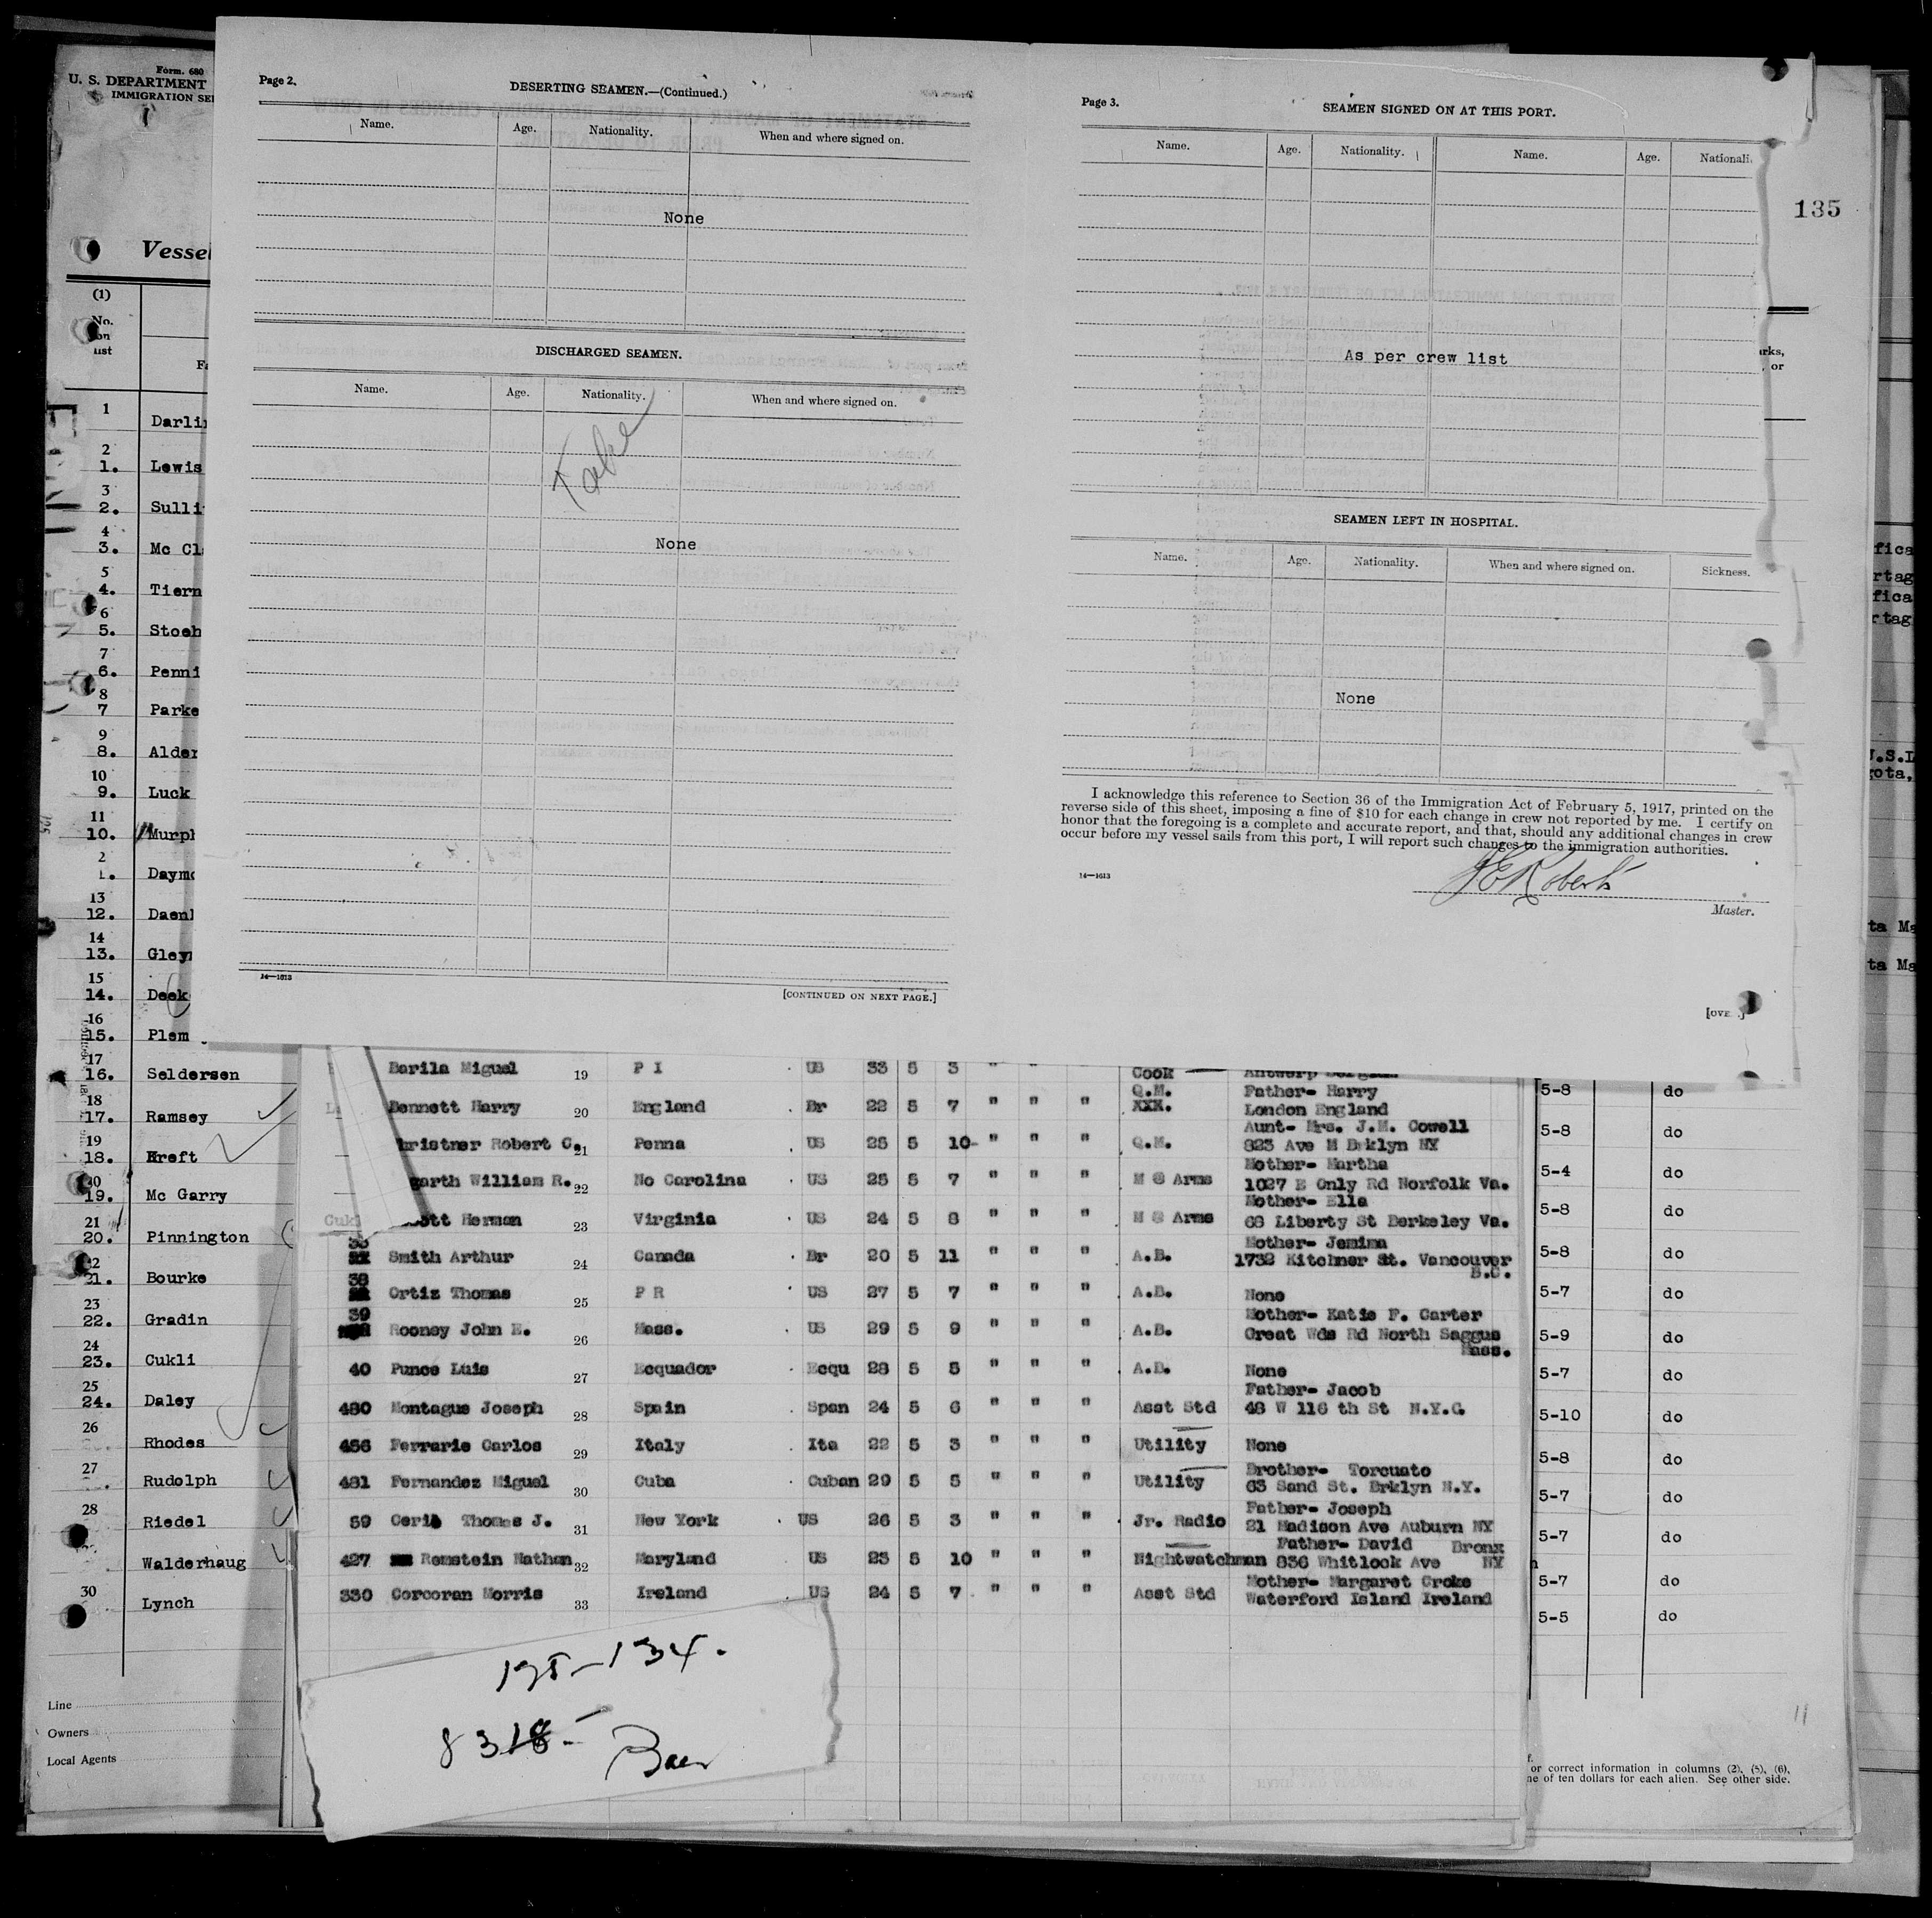 Form. 680
U. S. DEPARTMENT
IMMIGRATION
Vessel
(1)
No.
on
list
1 Darli
2
1. Lewis
3
2. Sulli
4
3. Mc Cl
5
4. Tiern
6
5. Stoeh
7
6. Penni
8
7 Parke
9
8. Alder
10
9. Luck
11
10. Murph
2
1. Daymo
13
12. Daenl
14
13. Gleyn
15
14. Deek
16
15. Plem
17
16. Seldersen
18
17. Ramsey
19
18. Kreft
20
19. Mc Garry
21
20. Pinnington
22
21. Bourke
23
22. Gradin
24
23. Cukli
25
24. Daley
26
Rhodes
27
Rudolph
28
Riedel
Walderhaug
30
Lynch
Line
Owners
Local Agents
Page 2.
DESERTING SEAMEN.—(Continued.)
Name. Age. Nationality. When and where signed on.
None
DISCHARGED SEAMEN.
Name. Age. Nationality. When and where signed on.
None
14—1613
[CONTINUED ON NEXT PAGE.]
Page 3.
SEAMEN SIGNED ON AT THIS PORT.
Name. Age. Nationality. Name. Age. Nationali
135
As per crew list
SEAMEN LEFT IN HOSPITAL.
Name. Age. Nationality. When and where signed on. Sickness.
None
I acknowledge this reference to Section 36 of the Immigration Act of February 5, 1917, printed on the
reverse side of this sheet, imposing a fine of $10 for each change in crew not reported by me. I certify on
honor that the foregoing is a complete and accurate report, and that, should any additional changes in crew
occur before my vessel sails from this port, I will report such changes to the immigration authorities.
14—1613
Roberts
Master.
[OVE .]
Barila Miguel 19 P I US 33 5 3 " " Cook
Q.M. Father- Harry
Bennett Harry 20 England Br 22 5 7 " " " XXX. London England
Aunt- Mrs. J.M. Cowell
hristner Robert C. 21 Penna US 25 5 10- " " " Q.M. 823 Ave M Brklyn NY
Mother- Martha
garth William R. 22 No Carolina US 25 5 7 " " " M @ Arms 1027 E Only Rd Norfolk Va.
Mother- Ella
Cukl ott Herman 23 Virginia US 24 5 8 " " " M @ Arms 68 Liberty St Berkeley Va.
Mother- Jemima
Smith Arthur 24 Canada Br 20 5 11 " " " A.B. 1732 Kitchner St. Vancouver
B.C.
38
Ortiz Thomas 25 P R US 27 5 7 " " " A.B. None
39 Mother- Katie F. Carter
Rooney John E. 26 Mass. US 29 5 9 " " " A.B. Great Wds Rd North Saggus
Mass.
40 Punce Luis 27 Ecquador Ecqu 28 5 5 " " " A.B. None
Father- Jacob
480 Montague Joseph 28 Spain Span 24 5 6 " " " Asst Std 48 W 116 th St N.Y.C.
456 Ferrarie Carlos 29 Italy Ita 22 5 3 " " " Utility None
Brother- Torcuato
481 Fernandez Miguel 30 Cuba Cuban 29 5 5 " " " Utility 63 Sand St. Brklyn N.Y.
Father- Joseph
59 Thomas J. 31 New York US 26 5 3 " " " Jr. Radio 21 Madison Ave Auburn NY
Father- David Bronx
427 Remstein Nathan 32 Maryland US 23 5 10 " " " Nightwatchman 836 Whitlock Ave NY
Mother- Margaret Croke
330 Corcoran Morris 33 Ireland US 24 5 7 " " " Asst Std Waterford Island Ireland
5-8 do
5-8 do
5-4 do
5-8 do
5-8 do
5-7 do
5-9 do
5-7 do
5-10 do
5-8 do
5-7 do
5-7 do
5-7 do
5-5 do
or correct information in columns (2), (5), (6),
ne of ten dollars for each alien. See other side.